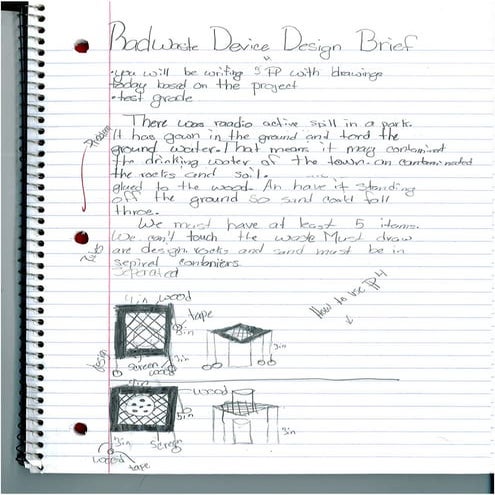 RadWaste Device Design Brief
• you will be writing 5 PP with drawings
• today based on the project
• test grade
Problem
There was roadio active spill in a park.
It has gown in the ground and tord the
ground water. That means it may contamint
the drinking water of the town. an contaminated
the rocks and soil.
glued to the wood. An have it standing
off the ground so sand could fall
throe.
We must have at least 5 items.
We can't touch the waste Must draw
are design. rocks and sand must be in
sepirel contaniers
Seperated
How to use PP 4
wood
tape
3in
3in
screen
wood
design
3in
wood
5in
3in
screen
wood
tape
3in